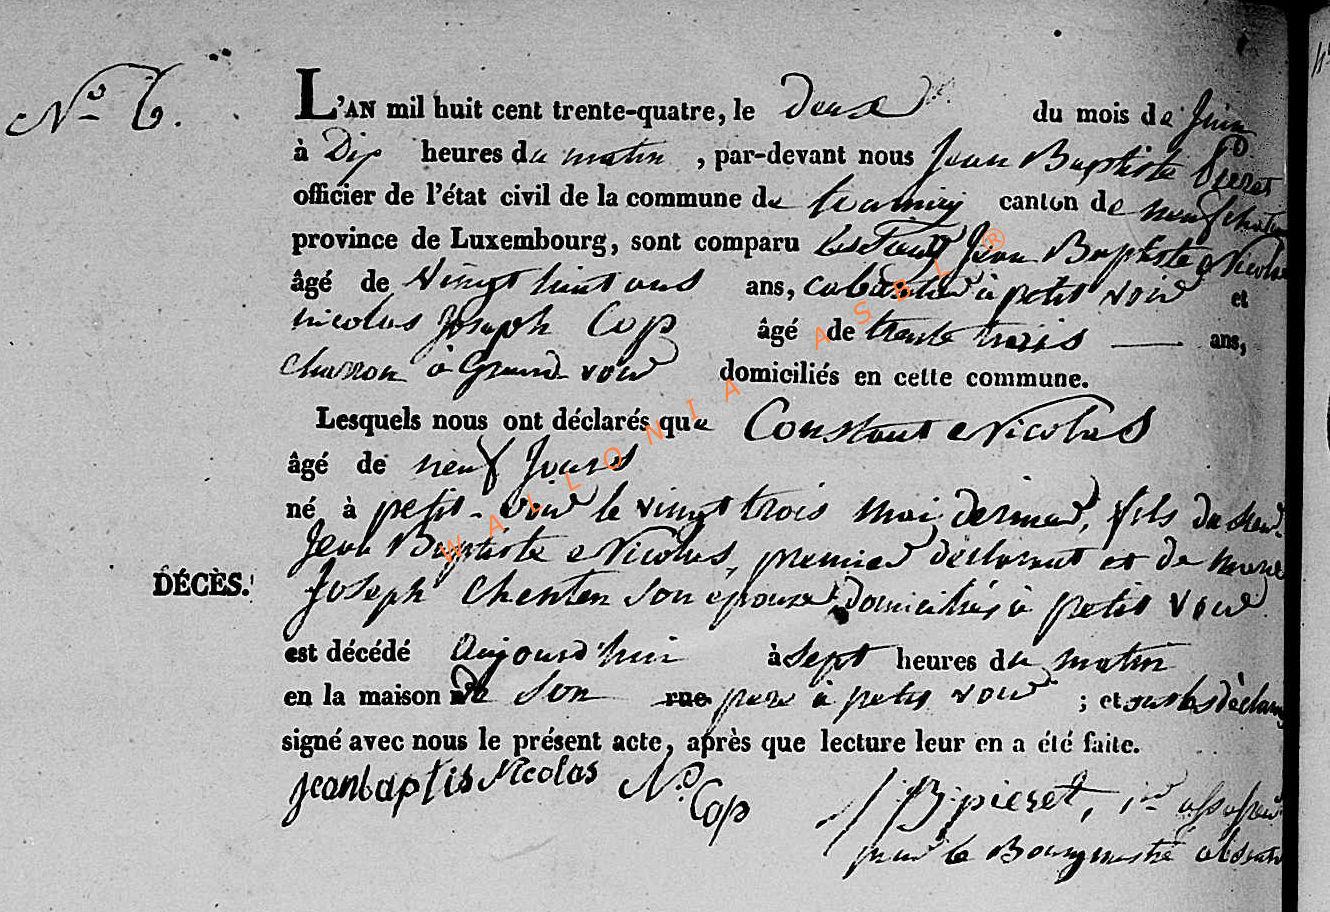 N.o 6.
L'AN mil huit cent trente-quatre, le deux du mois de Juin
à Dix heures du matin, par-devant nous Jean Baptiste Pieret
officier de l'état civil de la commune de tramury canton de neufchateau
province de Luxembourg, sont comparu Jean Baptiste Nicolas
âgé de Vingt huit ans ans, cabaretier à petit voir et
nicolas Joseph Cop âgé de trente trois — ans,
charron à Grand voir domiciliés en cette commune.
Lesquels nous ont déclarés que Constant Nicolas
âgé de neuf Jours
né à petit-voir le vingt trois mai dernier, fils du sieur
Jean Baptiste Nicolas, premier déclarant et de marie
DÉCÈS. Joseph Chenten son epouse domiciliés à petit voir
est décédé aujourd'hui à sept heures du matin
en la maison de son rue pere à petit voir ; et ont les déclarans
signé avec nous le présent acte, après que lecture leur en a été faite.
jeanbaptis Nicolas N.o Cop J B pieret, 1er assesseur
pour le Bourgmestre absent
WALLONIA ASBL ®